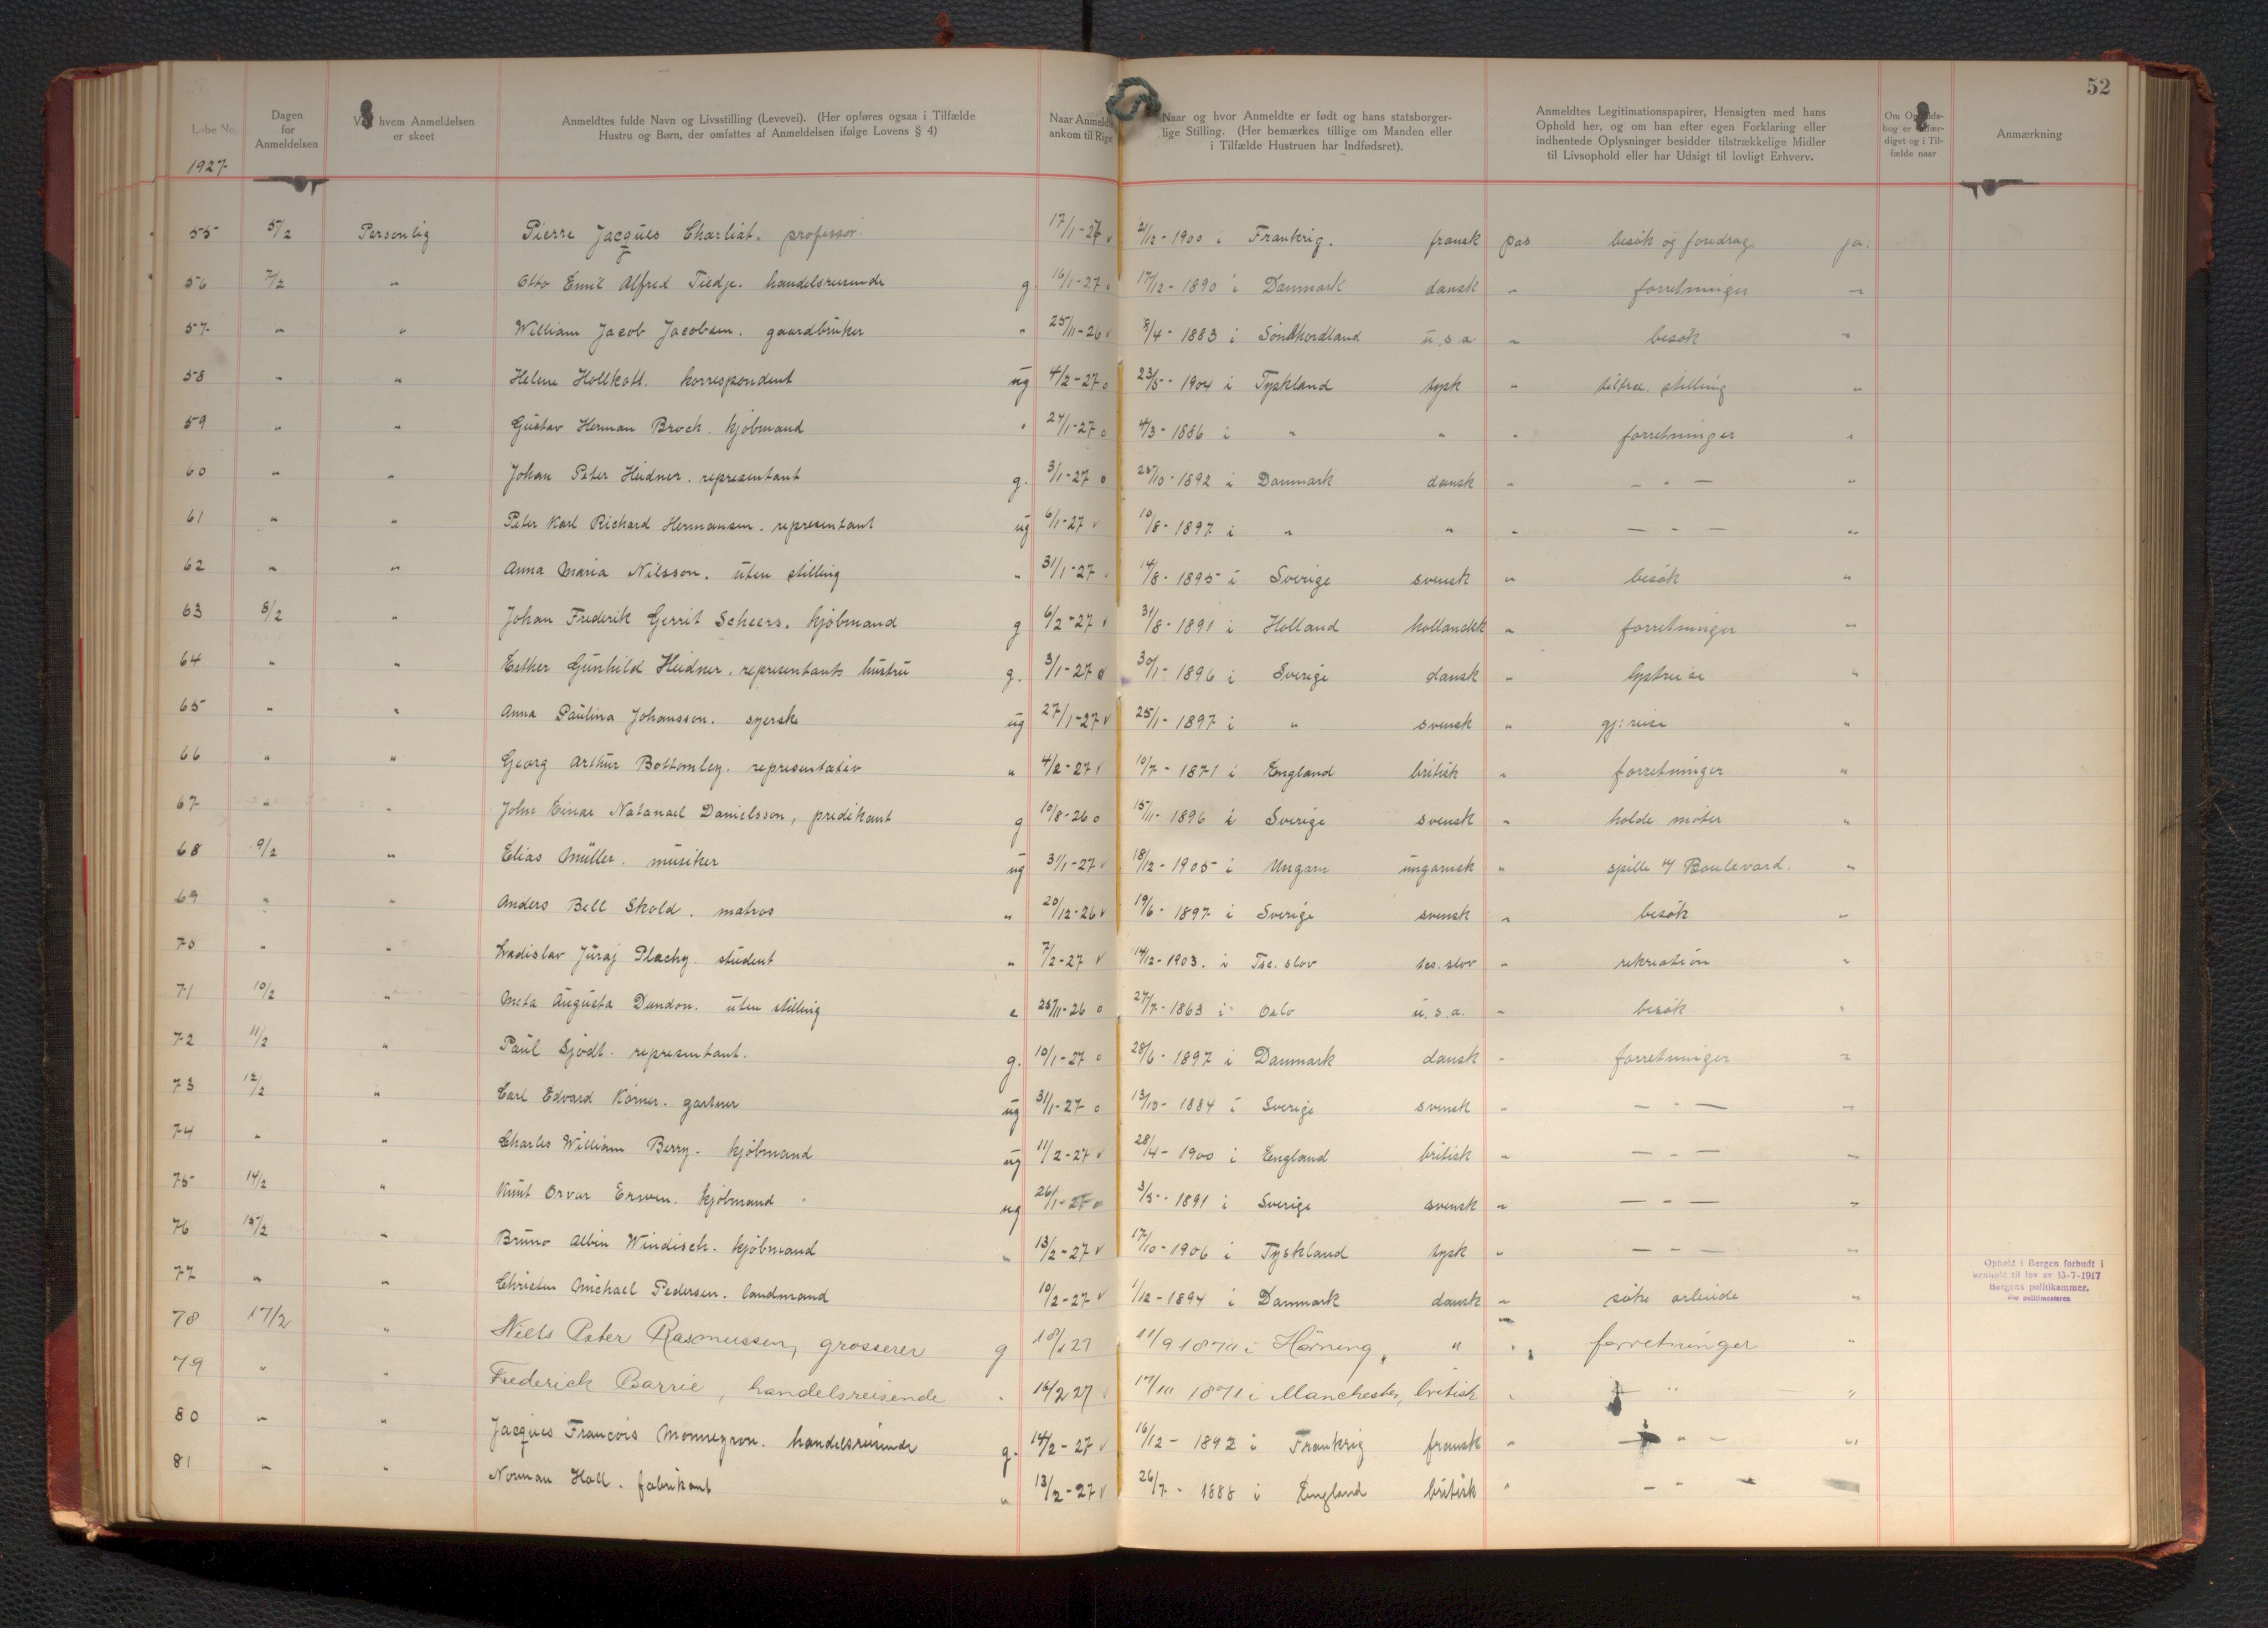 52
Løbe No.
Dagen for Anmeldelsen
hvem Anmeldelsen er skeet
Anmeldtes fulde Navn og Livsstilling (Levevei). (Her opføres ogsaa i Tilfælde Hustru og Børn, der omfattes af Anmeldelsen ifølge Lovens § 4)
Naar Anmeldte ankom til Riget
Naar og hvor Anmeldte er født og hans statsborgerlige Stilling. (Her bemærkes tillige om Manden eller i Tilfælde Hustruen har Indfødsret).
Anmeldtes Legitimationspapirer, Hensigten med hans Ophold her, og om han efter egen Forklaring eller indhentede Oplysninger besidder tilstrækkelige Midler til Livsophold eller har Udsigt til lovligt Erhverv.
Om Opholdsbog er udfærdiget og i Tilfælde naar
Anmærkning
1927
55 5/2 Personlig Pierre Jacques Charliat. professor. 17/1-27 v 21/12-1900 i Frankrig. fransk pas besøk og foredrag. ja.
56 7/2 " Otto Emil Alfred Tiedje. handelsreisende g 16/1-27 o 17/12-1890 i Danmark dansk " forretninger "
57 " " William Jacob Jacobsen. gaardbruker " 25/11-26 v 8/4-1883 i Søndhordland u.s.a. " besøk "
58 " " Helene Hollkott. korrespondent ug 4/2-27 o 23/5-1904 i Tyskland tysk " tiltræ. stilling "
59 " " Gustav Herman Brock. kjøbmand " 24/1-27 o 4/3-1886 i " " " forretninger "
60 " " Johan Peter Heidner. representant g. 3/1-27 o 25/10-1892 i Danmark dansk " — " — "
61 " " Peter Karl Richard Hermansen. representant ug 6/1-27 v 10/8-1897 i " " " — " — "
62 " " Anna Maria Nilsson. uten stilling " 31/1-27 14/8-1895 i Sverige svensk " besøk "
63 8/2 " Johan Frederik Gerrit Scheers. kjøbmand g 6/2-27 v 31/8-1891 i Holland hollandsk " forretninger "
64 " " Esther Gunhild Heidner. representants hustru g. 3/1-27 o 30/1-1896 i Sverige dansk " lystreise "
65 " " Anna Paulina Johansson. syerske ug 27/1-27 v 25/1-1897 i " svensk " gj: reise "
66 " " Georg Arthur Bottomley. representativ " 4/2-27 v 10/7-1871 i England britisk " forretninger "
67 " " John Einar Natanael Danielsson, predikant g 10/8-26 o 15/11-1896 i Sverige svensk " holde møter "
68 9/2 " Elias Müller. musiker ug 31/1-27 v 18/12-1905 i Ungarn ungarnsk " spille Boulevard. "
69 " " Anders Bell Skold. matros " 20/12-26 v 19/6-1897 i Sverige svensk " besøk "
70 " " Juraj Plachy. student " 7/2-27 v 14/12-1903. i Tsc. slov tsc. slov " rekreation "
71 10/2 " Meta Augusta Dundon. uten stilling e 25/11-26 o 27/7-1863 i Oslo u.s.a. " besøk "
72 11/2 " Paul Sjødt. representant. g. 10/1-27 o 28/6-1897 i Danmark dansk " forretninger "
73 12/2 " Carl Edvard Körner. gartner ug 31/1-27 o 13/10-1884 i Sverige svensk " — " — "
74 " " Charles William Berry. kjøbmand ug 11/2-27 v 28/4-1900 i England britisk " — " — "
75 14/2 " Knut Orvar kjøbmand ug 26/1-27 o 3/5-1891 i Sverige svensk " — " — "
76 15/2 " Bruno Albin Windisch. kjøbmand " 13/2-27 v 17/10-1906 i Tyskland tysk " — " — "
77 " " Christen Michael Pedersen. landmand 10/2-27 v 1/12-1894 i Danmark dansk " søke arbeide "
Ophold i Bergen forbudt i
henhold til lov av 13-7-1917
Bergens politikammer.
For politimesteren
78 17/2 " Niels Peter Rasmussen, grosserer g 27 i Hörning, " " forretninger "
79 " " Frederick Barrie, handelsreisende " 16/2 27 17/10 1871 i Manchester, britisk " " "
80 " " Jacques Francois Monneyron. handelsreisende g. 14/2-27 v 16/12-1892 i Frankrig fransk " — " — "
81 " " Norman Hall. fabrikant " 13/2-27 v 26/7-1888 i England britisk " — " —